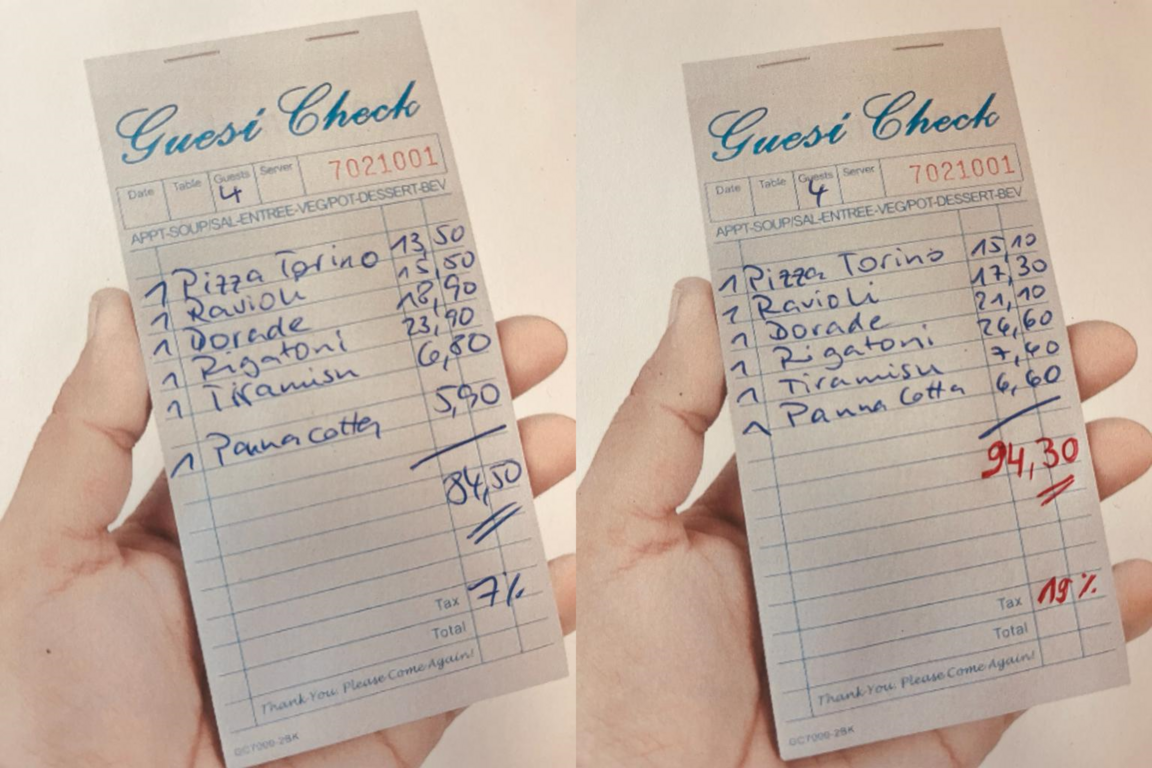 Guesi Check
Date Table Guests Server 7021001
4
APPT-SOUP/SAL-ENTREE-VEG/POT-DESSERT-BEV
1 Pizza Torino 13,50
1 Ravioli 15,50
1 Dorade 18,90
1 Rigatoni 23,90
1 Tiramisu 6,80
1 Panna cotta 5,90
84,50
Tax 7%
Total
Thank You. Please Come Again!
GC7000-2BK
Guesi Check
Date Table Guests Server 7021001
4
APPT-SOUP/SAL-ENTREE-VEG/POT-DESSERT-BEV
1 Pizza Torino 15,10
1 Ravioli 17,30
1 Dorade 21,10
1 Rigatoni 26,60
1 Tiramisu 7,40
1 Panna Cotta 6,60
94,30
Tax 19%
Total
Thank You. Please Come Again!
GC7000-2BK